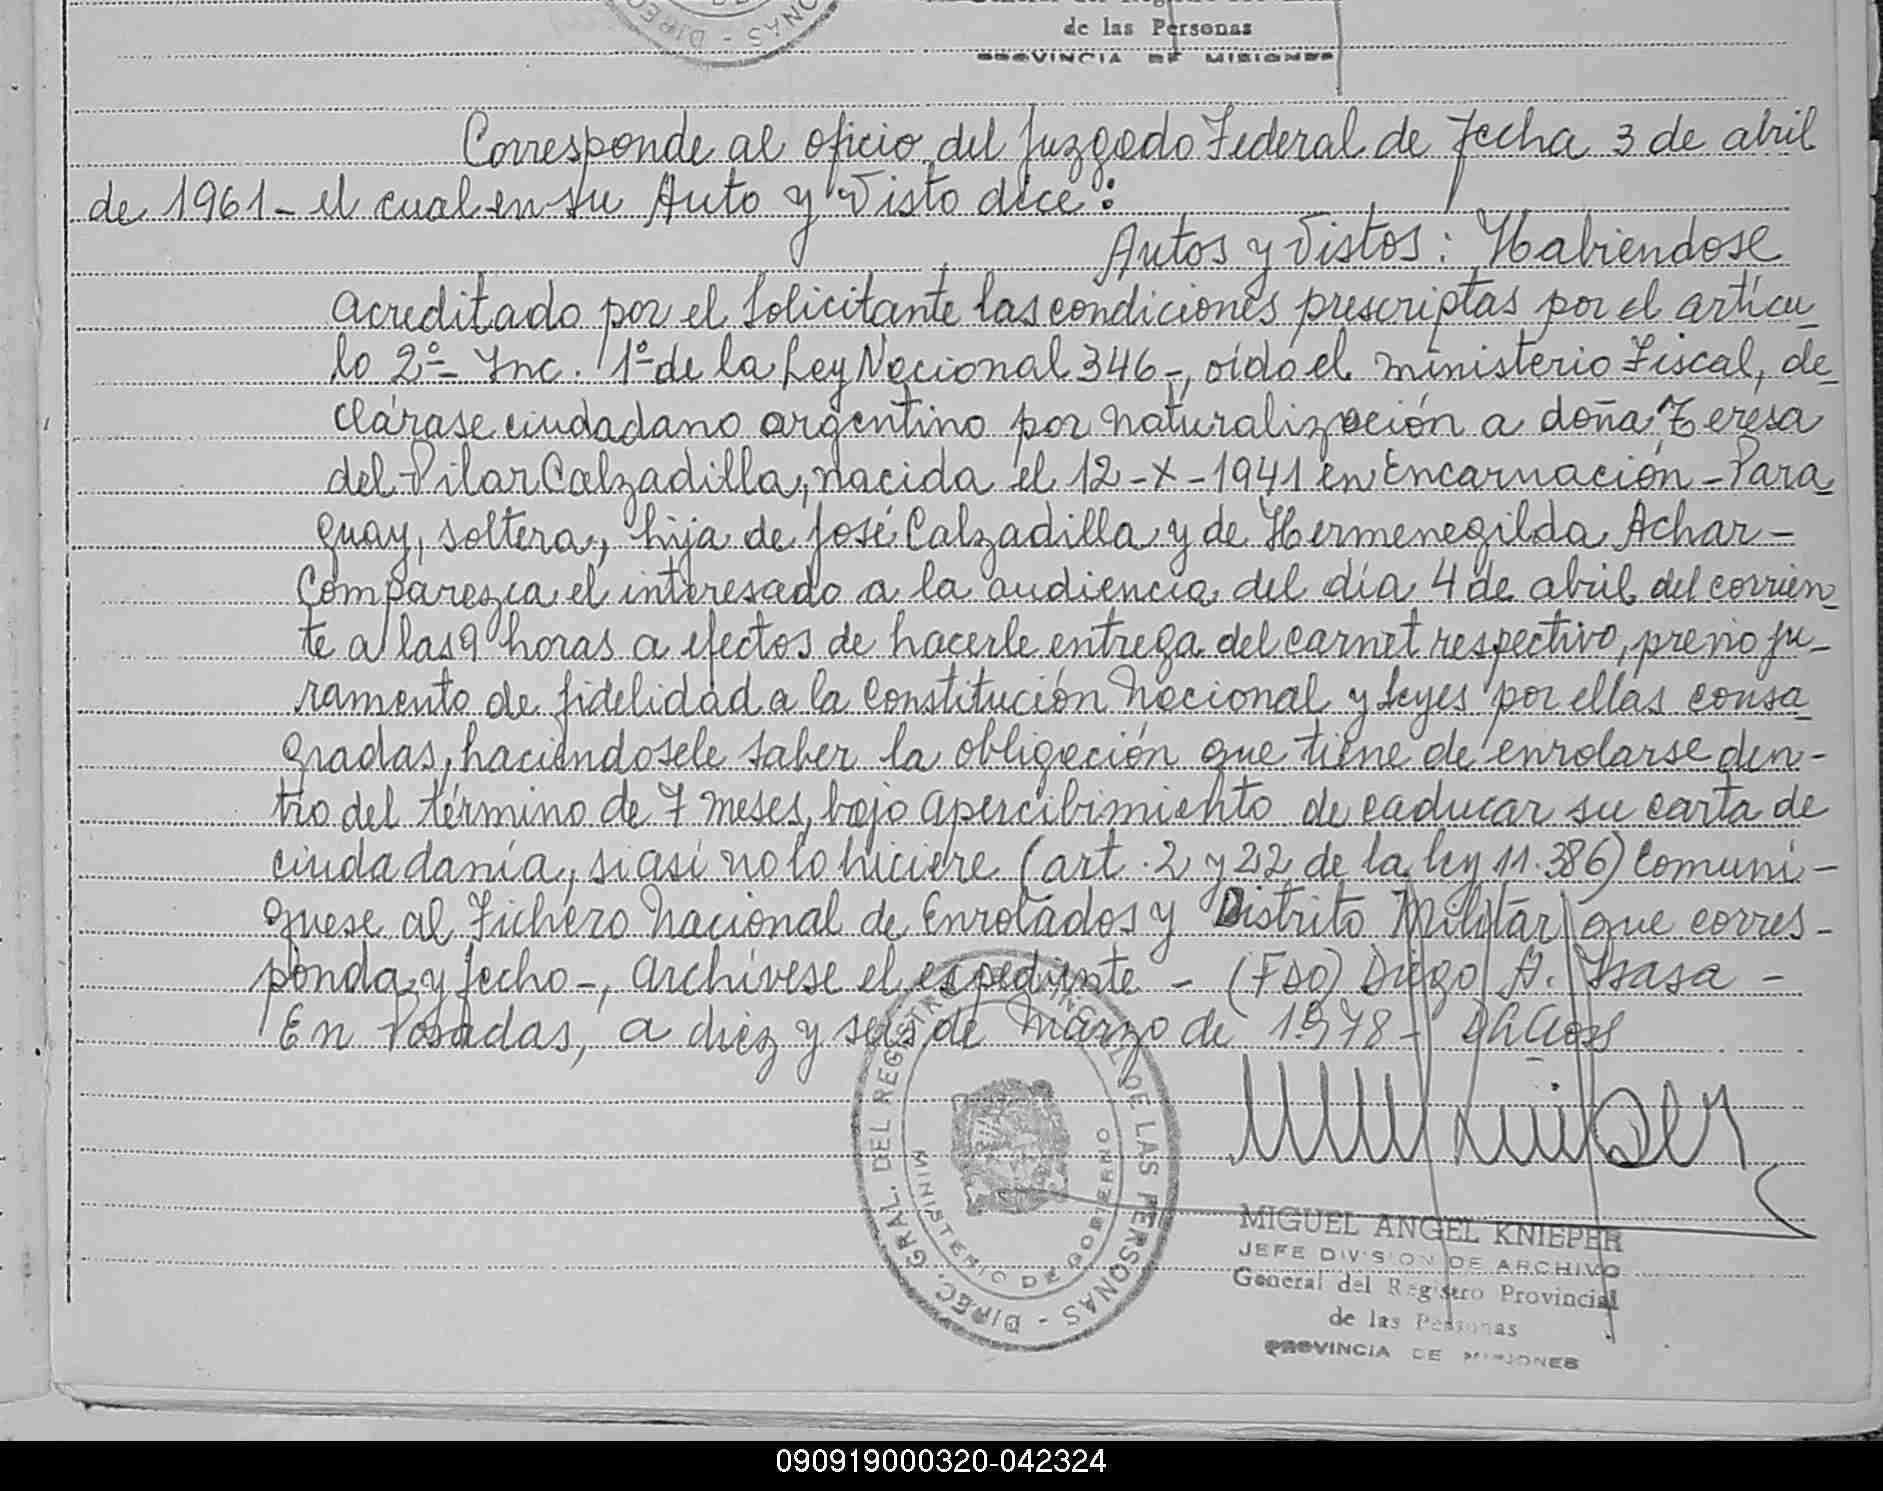 de las Personas
PROVINCIA DE MISIONES
Corresponde al oficio del Juzgado Federal de fecha 3 de abril
de 1961- el cual en su Auto y Visto dice:
Autos y Vistos: Habiendose
acreditado por el solicitante las condiciones prescriptas por el artícu_
lo 2º- Inc. 1º de la Ley Nacional 346-, oído el ministerio Fiscal, de_
clárase ciudadano argentino por naturalización a doña Teresa
del Pilar Calzadilla, nacida el 12-X-1941 en Encarnación-Para_
guay, soltera, hija de José Calzadilla y de Hermenegilda Achar-
Comparezca el interesado a la audiencia del día 4 de abril del corrien_
te a las 9 horas a efectos de hacerle entrega del carnet respectivo, previo ju-
ramento de fidelidad a la Constitución Nacional y Leyes por ellas consa_
gradas, haciéndosele saber la obligación que tiene de enrolarse den-
tro del término de 7 meses, bajo apercibimiento de caducar su carta de
ciudadanía, si así no lo hiciere (art. 2 y 22 de la ley 11.386) Comuní-
quese al Fichero Nacional de Enrolados y Distrito Militar que corres-
ponda y fecho-, archívese el expediente - (FDO) Diego A. Isasa -
En Posadas, a diez y seis de Marzo de 1978-
DIREC. GRAL. DEL REGISTRO PROVINCIAL DE LAS PERSONAS
MINISTERIO DE GOBIERNO
MIGUEL ANGEL KNIEPER
JEFE DIVISION DE ARCHIVO
General del Registro Provincial
de las Personas
PROVINCIA DE MISIONES
090919000320-042324